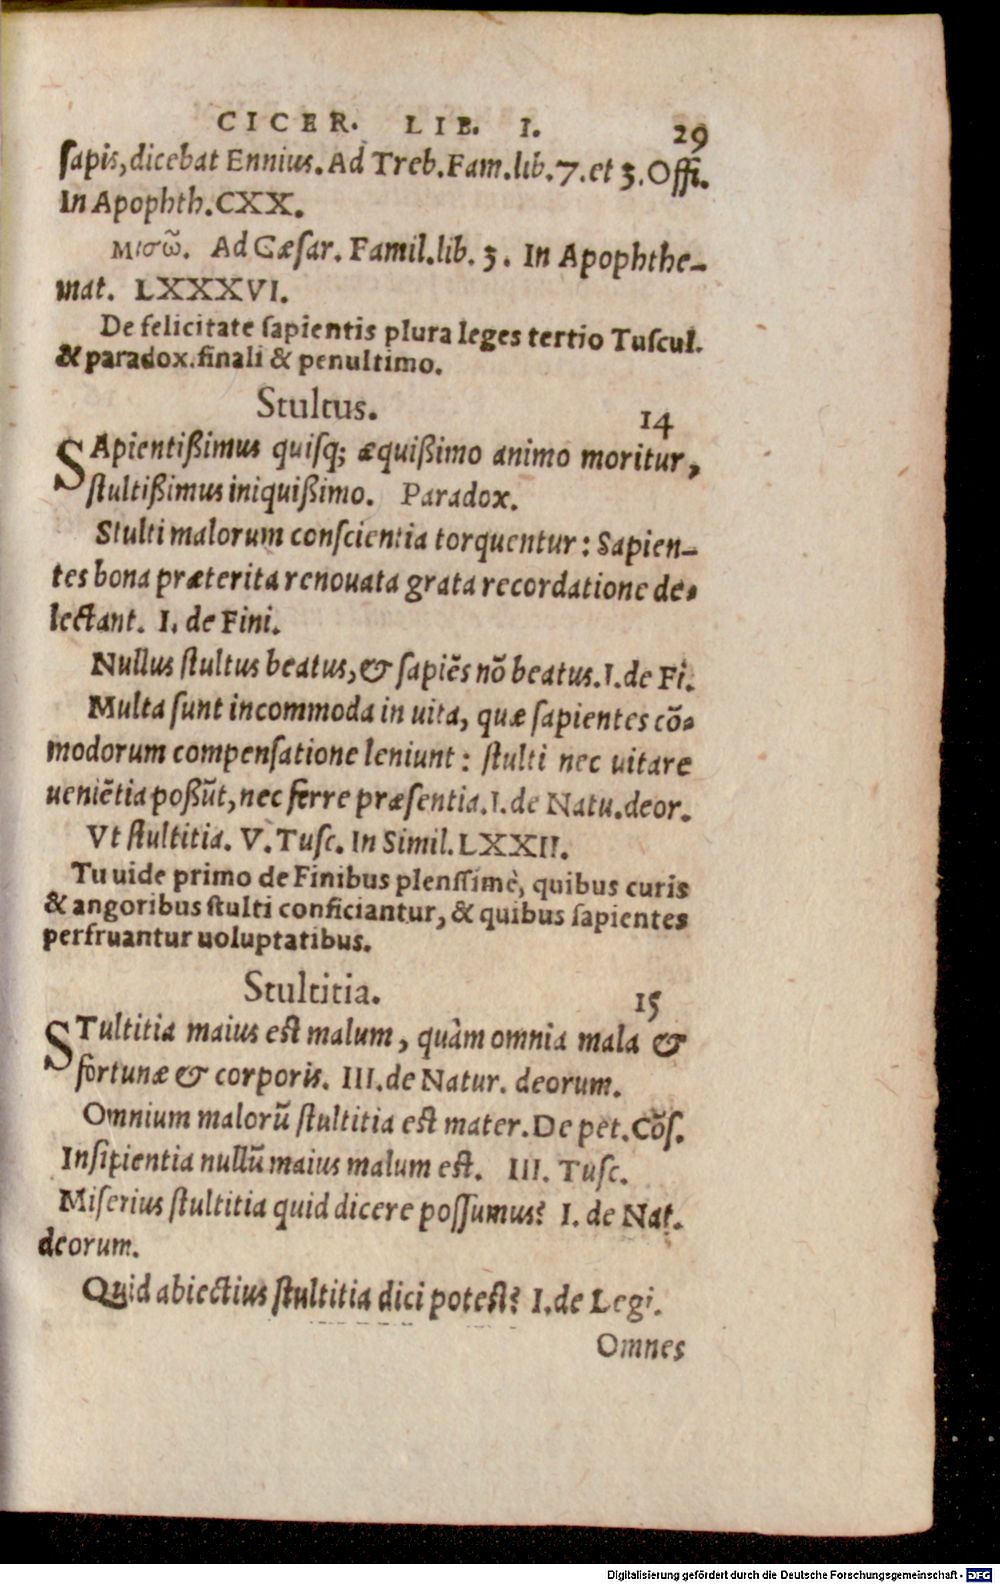 CICER. LIB. I. 29
ſapis, dicebat Ennius. Ad Treb. Fam. lib. 7. et 3. Offi.
In Apophth. CXX.
Μισῶ. Ad Cæſar. Famil. lib. 3. In Apophthe-
mat. LXXXVI.
De felicitate ſapientis plura leges tertio Tuſcul.
& paradox. finali & penultimo.
Stultus. 14
SApientißimus quiſq; æquißimo animo moritur,
ſtultißimus iniquißimo. Paradox.
Stulti malorum conſcientia torquentur: Sapien-
tes bona præterita renouata grata recordatione de-
lectant. I. de Fini.
Nullus ſtultus beatus, & ſapiẽs nõ beatus. I. de Fi.
Multa ſunt incommoda in uita, quæ ſapientes cõ-
modorum compenſatione leniunt: ſtulti nec uitare
ueniẽtia poßũt, nec ferre præſentia. I. de Natu. deor.
Vt ſtultitia. V. Tuſc. In Simil. LXXII.
Tu uide primo de Finibus pleniſſimè, quibus curis
& angoribus ſtulti conficiantur, & quibus ſapientes
perfruantur uoluptatibus.
Stultitia. 15
STultitia maius eſt malum, quàm omnia mala &
fortunæ & corporis. III. de Natur. deorum.
Omnium malorũ ſtultitia eſt mater. De pet. Cõſ.
Inſipientia nullũ maius malum eſt. III. Tuſc.
Miſerius ſtultitia quid dicere poſſumus? I. de Nat.
deorum.
Quid abiectius ſtultitia dici poteſt? I. de Legi.
Omnes
Digitalisierung gefördert durch die Deutsche Forschungsgemeinschaft - DFG